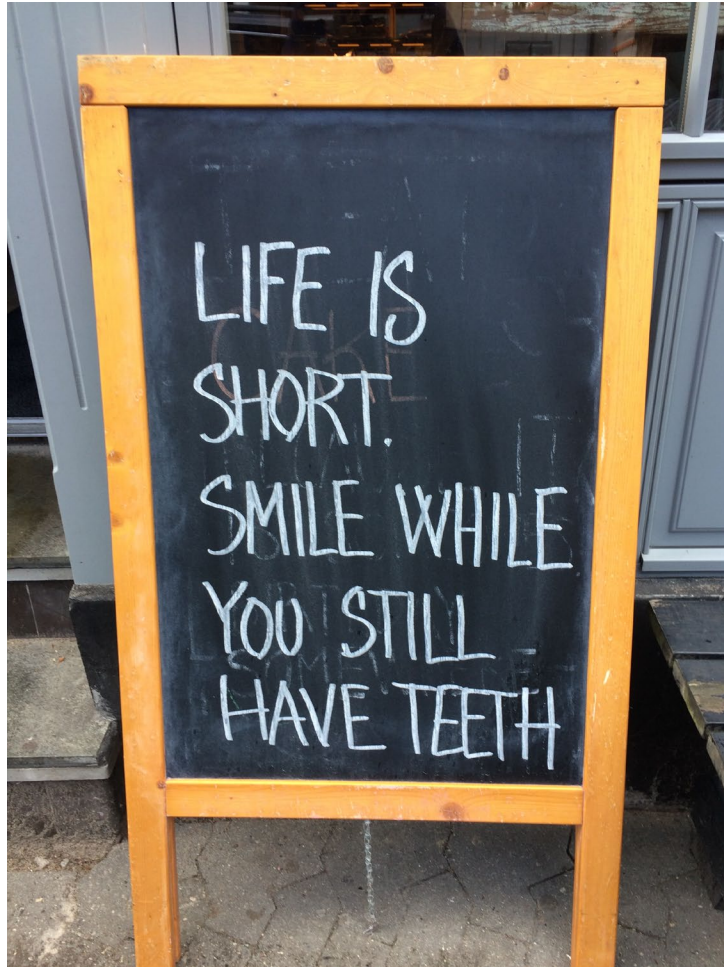 LIFE IS
SHORT.
SMILE WHILE
YOU STILL
HAVE TEETH